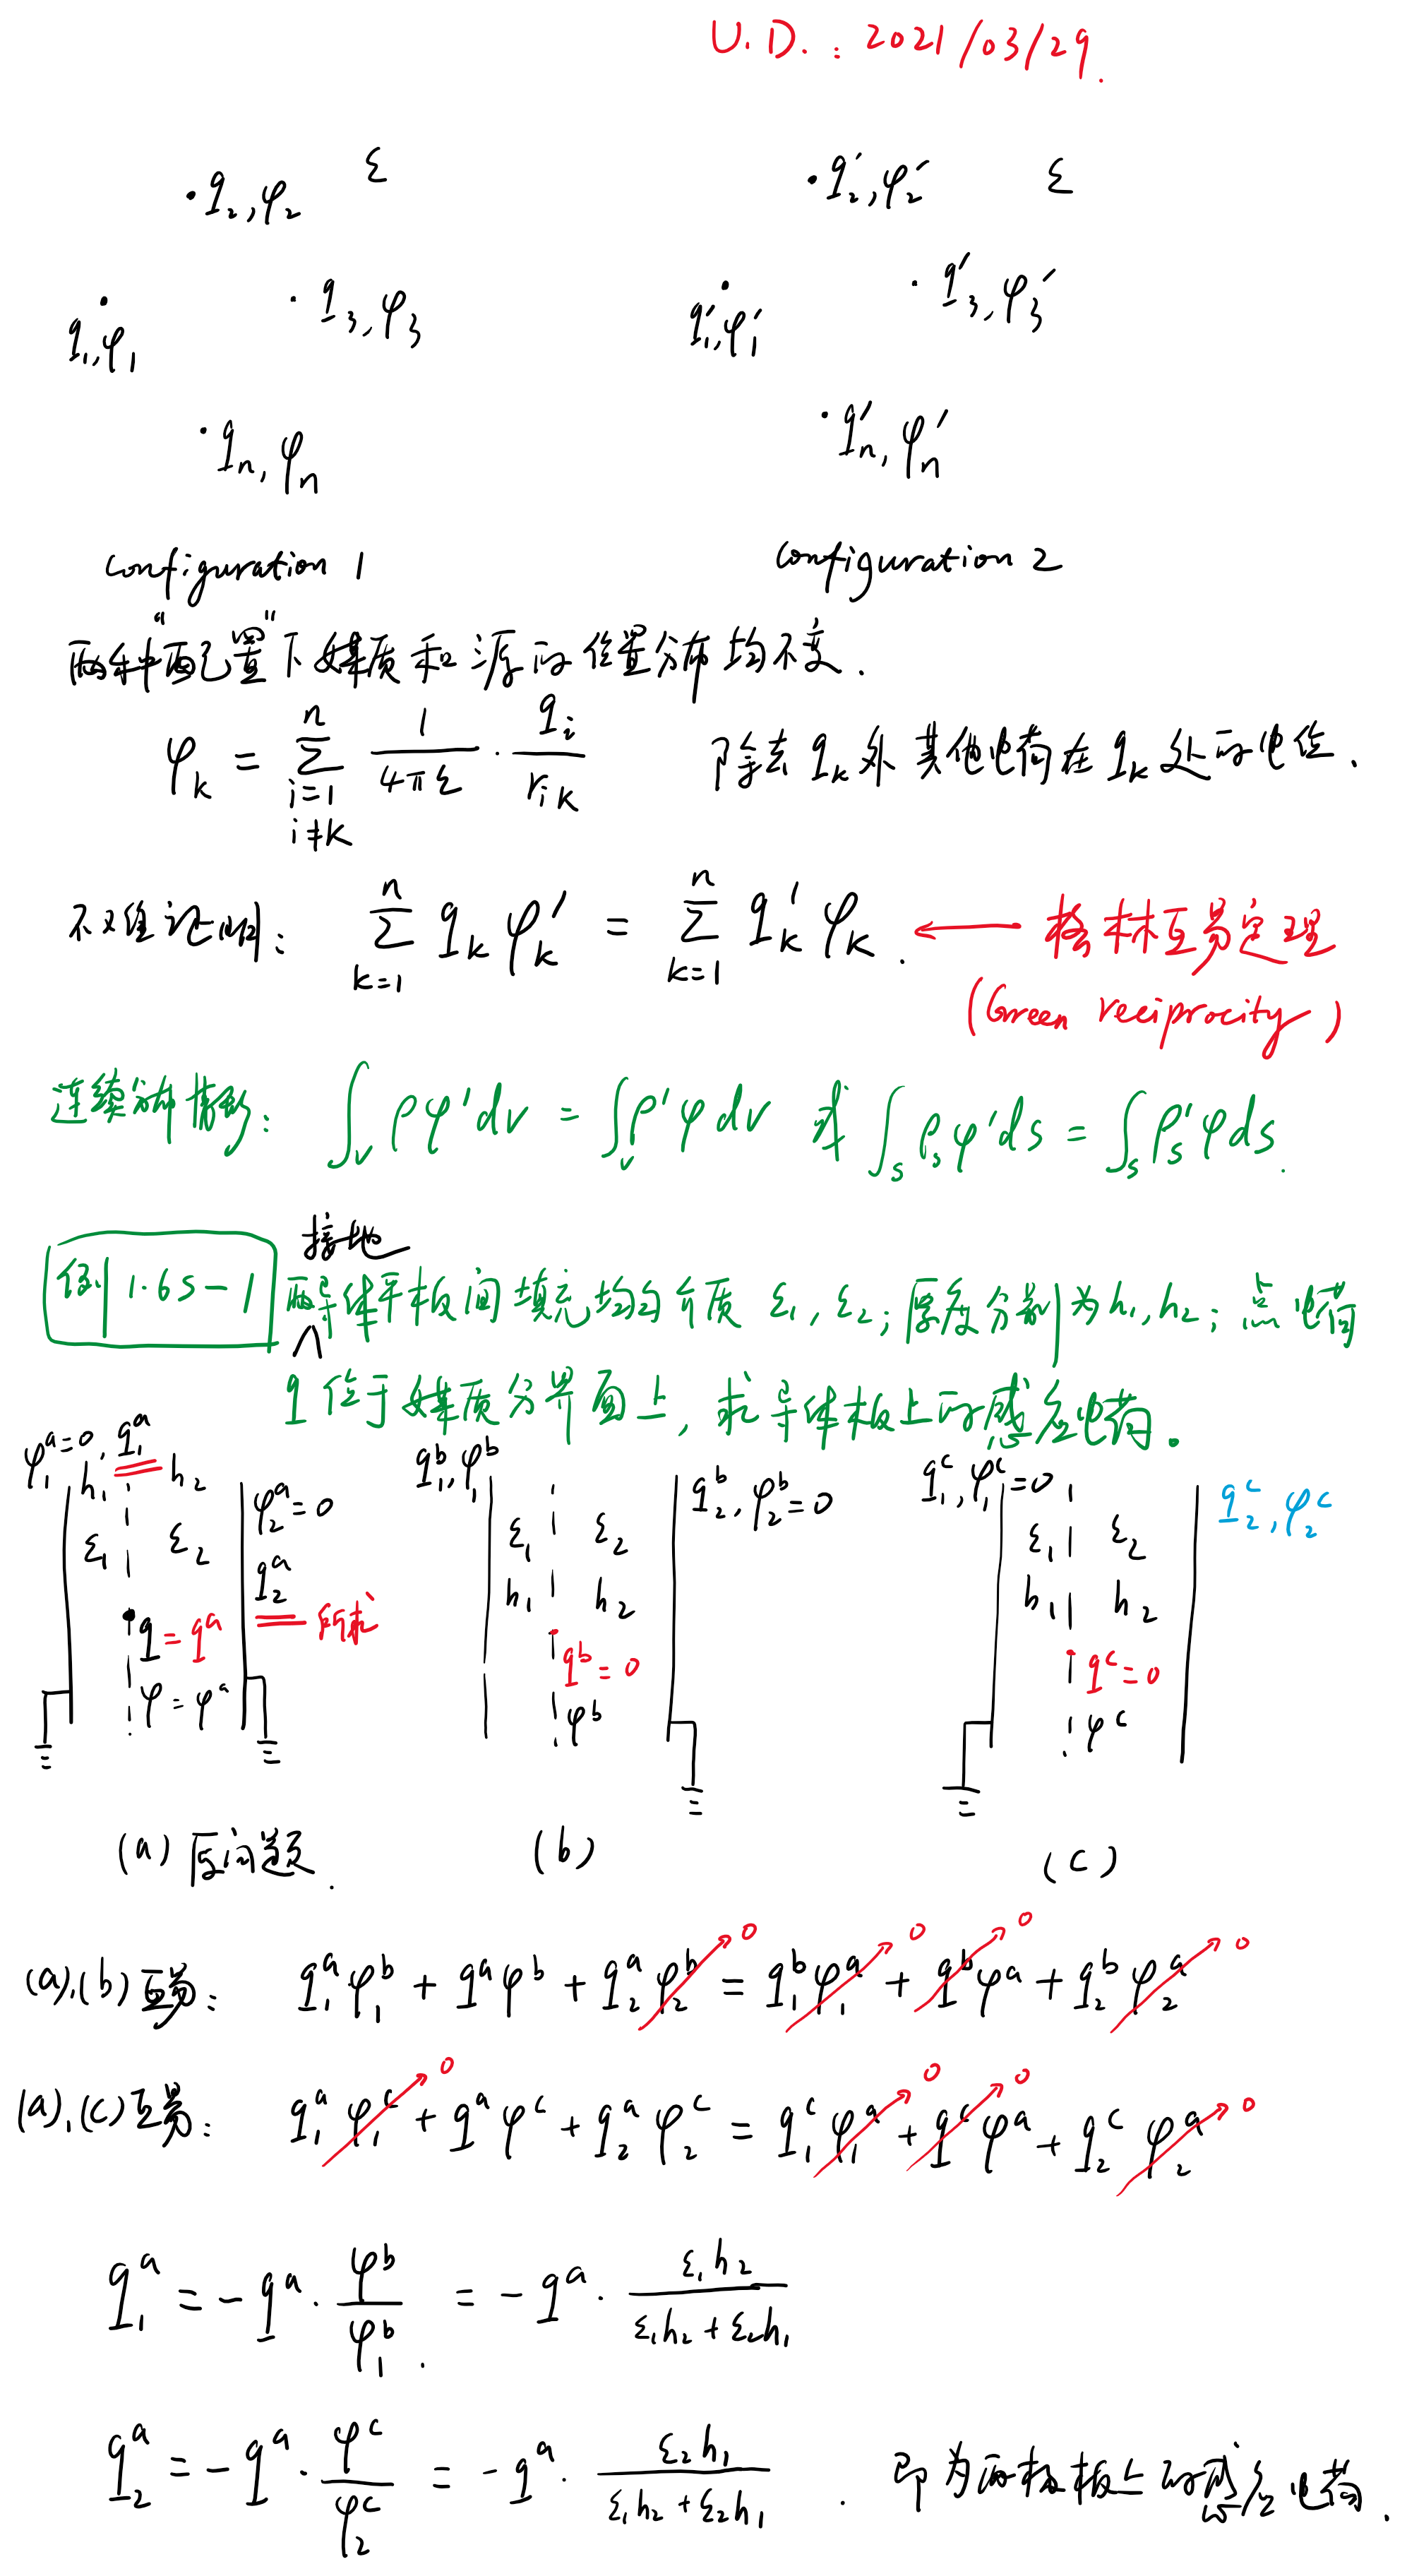 U.D.: 2021/03/29.
·q₂,φ₂ ε
·q₂′,φ₂′ ε
·q₃,φ₃
·q₃′,φ₃′
q₁,φ₁
q₁′,φ₁′
·qₙ,φₙ
·qₙ′,φₙ′
configuration 1
configuration 2
两种“配置”下媒质和源的位置分布均不变.
φₖ = Σ(i=1, i≠k → n) 1/(4πε) · qᵢ/rᵢₖ 除去qₖ外其他电荷在qₖ处的电位.
不难证明: Σ(k=1 → n) qₖφₖ′ = Σ(k=1 → n) qₖ′φₖ. ← 格林互易定理
(Green reciprocity)
连续分布情形: ∫ᵥ ρφ′dv = ∫ᵥ ρ′φdv 或 ∫ₛ ρₛφ′ds = ∫ₛ ρₛ′φds.
例1.6S-1 接地两导体平板间填充均匀介质 ε₁, ε₂; 厚度分别为h₁, h₂; 点电荷
q位于媒质分界面上, 求导体板上的感应电荷。
φ₁ᵃ=0, q₁ᵃ
h₁ h₂
φ₂ᵃ=0
ε₁ ε₂
q₂ᵃ
所求
q=qᵃ
φ=φᵃ
(a) 原问题.
q₁ᵇ,φ₁ᵇ
q₂ᵇ,φ₂ᵇ=0
ε₁ ε₂
h₁ h₂
qᵇ=0
φᵇ
(b)
q₁ᶜ,φ₁ᶜ=0
q₂ᶜ,φ₂ᶜ
ε₁ ε₂
h₁ h₂
qᶜ=0
φᶜ
(c)
(a),(b)互易: q₁ᵃφ₁ᵇ + qᵃφᵇ + q₂ᵃφ₂ᵇ→0 = q₁ᵇφ₁ᵃ→0 + qᵇφᵃ→0 + q₂ᵇφ₂ᵃ→0
(a),(c)互易: q₁ᵃφ₁ᶜ→0 + qᵃφᶜ + q₂ᵃφ₂ᶜ = q₁ᶜφ₁ᵃ→0 + qᶜφᵃ→0 + q₂ᶜφ₂ᵃ→0
q₁ᵃ = -qᵃ · φᵇ/φ₁ᵇ = -qᵃ · ε₁h₂/(ε₁h₂+ε₂h₁).
q₂ᵃ = -qᵃ · φᶜ/φ₂ᶜ = -qᵃ · ε₂h₁/(ε₁h₂+ε₂h₁). 即为两极板上的感应电荷.